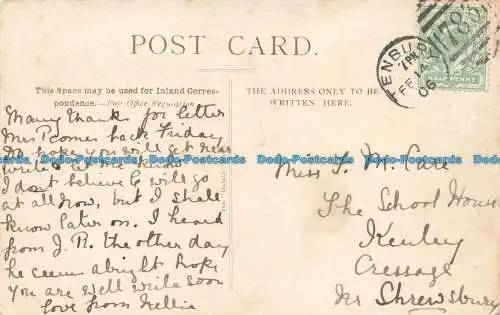 POST CARD.
This Space may be used for Inland Corres-
pondence.—Post Office Regulation
THE ADDRESS ONLY TO BE
WRITTEN HERE.
TENBURY
FE
06
785
HALF PENNY
Many thanks for letter
Mrs P comes back Friday
so hope you will get
write & let me know
I don't believe G will go
at all now, but I shall
know later on. I heard
from J. P. the other day
he seems alright hope
you are well write soon
love from Nellie
Miss M. Care
The School House
Kenley
Cressage
Nr Shrewsbury
Dodo-Postcards Dodo-Postcards Dodo-Postcards Dodo-Postcards Dodo-Postcards Dodo-Postcards